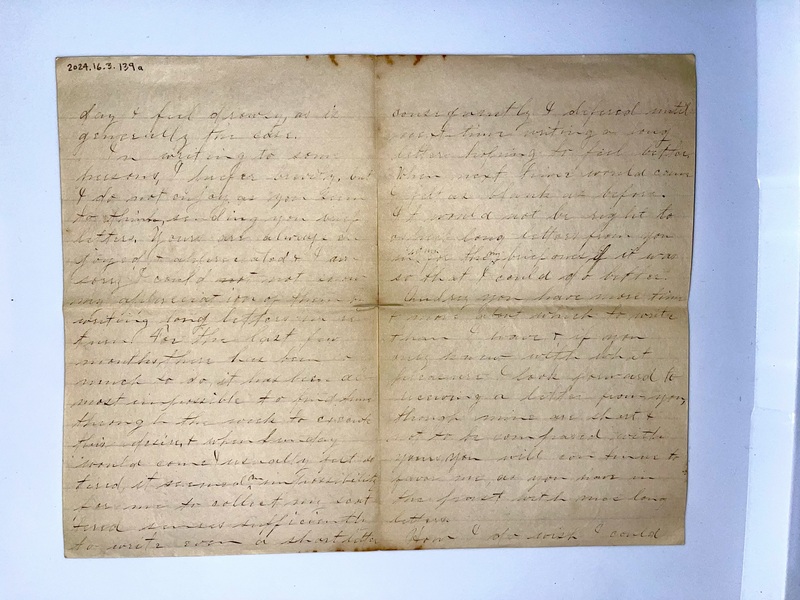 2024.16.3.139a
day I feel drowsy, as is
generally the case.
In writing to some
persons, I prefer brevity, but
I do not enjoy, as you seem
to think, sending you brief
letters. Yours are always en-
joyed & appreciated & I am
sorry I could not not show
my appreciation of them by
writing long letters in re-
turn. For the last few
months, there has been so
much to do, it has been al-
most impossible to find time
through the week to execute
this desire, & when Sunday
would come I usually felt so
tired, it seemed an impossibility
for me to collect my scat-
tered senses sufficiently
to write even a short letter
consequently I differed until
next time writing a long
letter hoping to feel better.
When next time would come
I felt as blank as before.
It would not be right to
long letters from you
in return for my brief ones if it was
so that I could do better.
Besides you have more time
& more about which to write
than I have & if you
only knew with what
pleasure I look forward to
receiving a letter from you,
though mine are short &
not to be compared with
yours, you will continue to
favor me, as you have in
the past with nice long
letters.
How I do wish I could